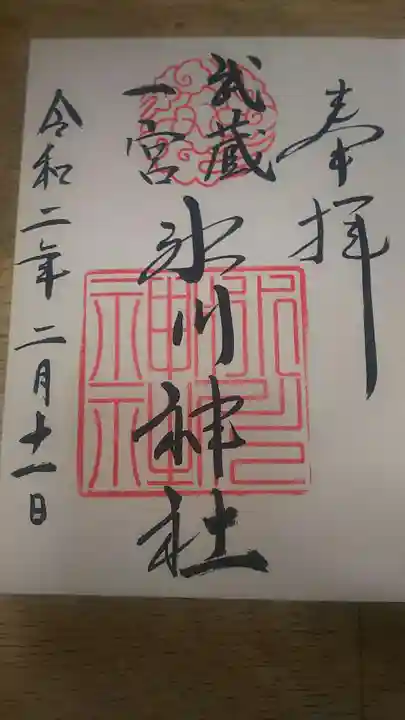 奉拝
武蔵
一宮
氷川神社
氷川
神社
令和二年二月十一日